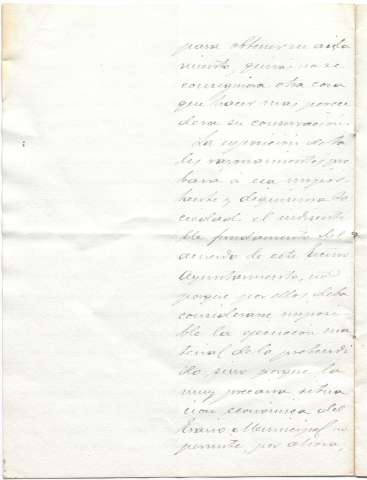 para obtener su aisla
miento, quizá no se
consiguiera otra cosa
que hacer mas perece
dera su conservación.
La esposicion de ta
les razonamientos pro
bará á esa
y
ciudad el
ble fundamento del
acuerdo de este Excmo
Ayuntamiento, no
porque por ellos deba
considerarse imposi
ble la ejecucion ma
terial de lo pretendi
do, sino porque la
muy precaria situa
cion económica del
Erario Municipal no
permite, por ahora,